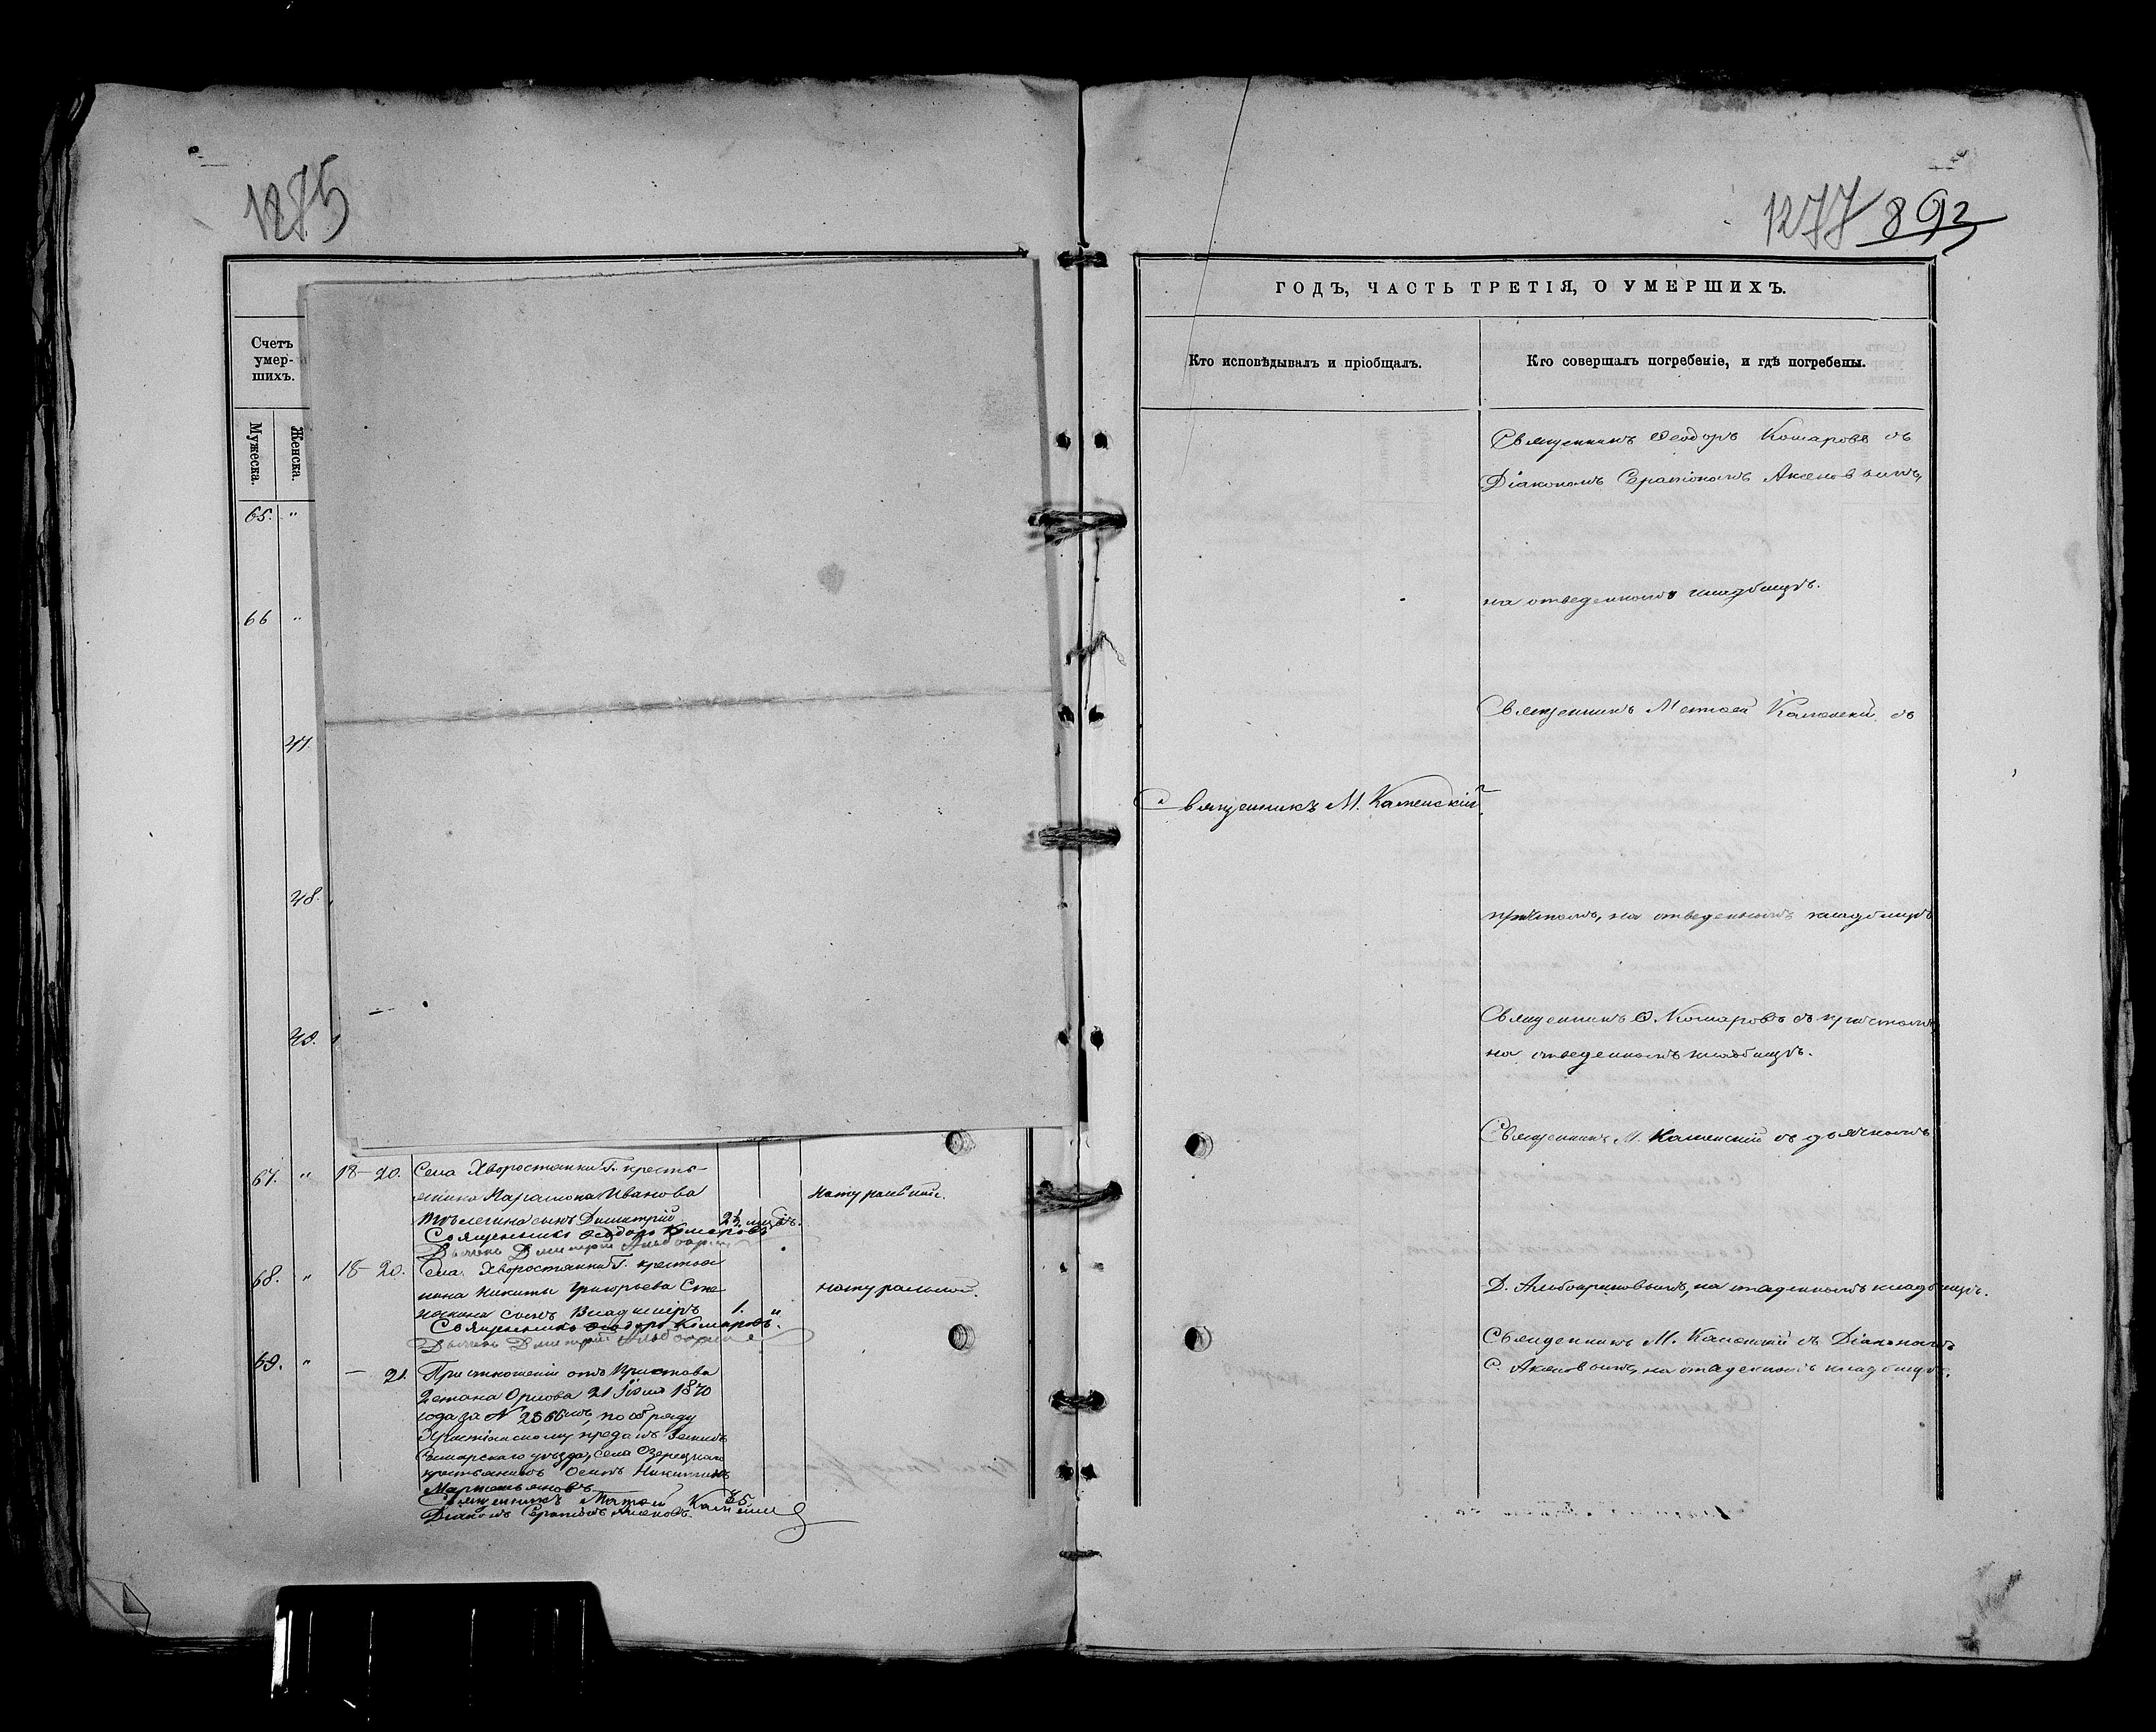 1285
Счетъ
умер-
шихъ.
Мужеска.
Женска.
65. "
66 "
47.
48.
49.
67. " 18-20. Села Хворостянки Г. кресть-
янина Иванова
сынъ Димитрій 2½
натуральной.
Священникъ Ѳеодоръ Комаровъ
Дьячекъ Дмитрій
68. " 18-20. Села Хворостянки Г. крестья
нина Никиты Григорьева
сынъ Владиміръ 1. "
натуральной.
Священникъ Ѳеодоръ Комаровъ.
Дьячекъ Дмитрій
69. " — 21. При отношеніи отъ Пристава
2 стана Орлова 21 1870
года за № 2366 по обряду
Христіанскому преданъ землѣ
Самарскаго уѣзда, села
крестьянинъ Осипъ Никитинъ
35
Священникъ Каменскій
Діаконъ Серапіонъ Аксеновъ.
1277 893
ГОДЪ, ЧАСТЬ ТРЕТІЯ, О УМЕРШИХЪ.
Кто исповѣдывалъ и пріобщалъ.
Кто совершалъ погребеніе, и гдѣ погребены.
Священникъ Ѳеодоръ Комаровъ съ
Діакономъ Серапіономъ Аксеновымъ,
на отведенномъ кладбищѣ.
Священникъ Каменскій съ
Священникъ М. Каменскій
причтомъ, на отведенномъ кладбищѣ
Священникъ Ѳ. Комаровъ съ причтомъ,
на отведенномъ кладбищѣ.
Священникъ М. Каменскій съ дьячкомъ
Д. на отведенномъ кладбищѣ.
Священникъ М. Каменскій съ Діакономъ
С. Аксеновымъ, на отведенномъ кладбищѣ.